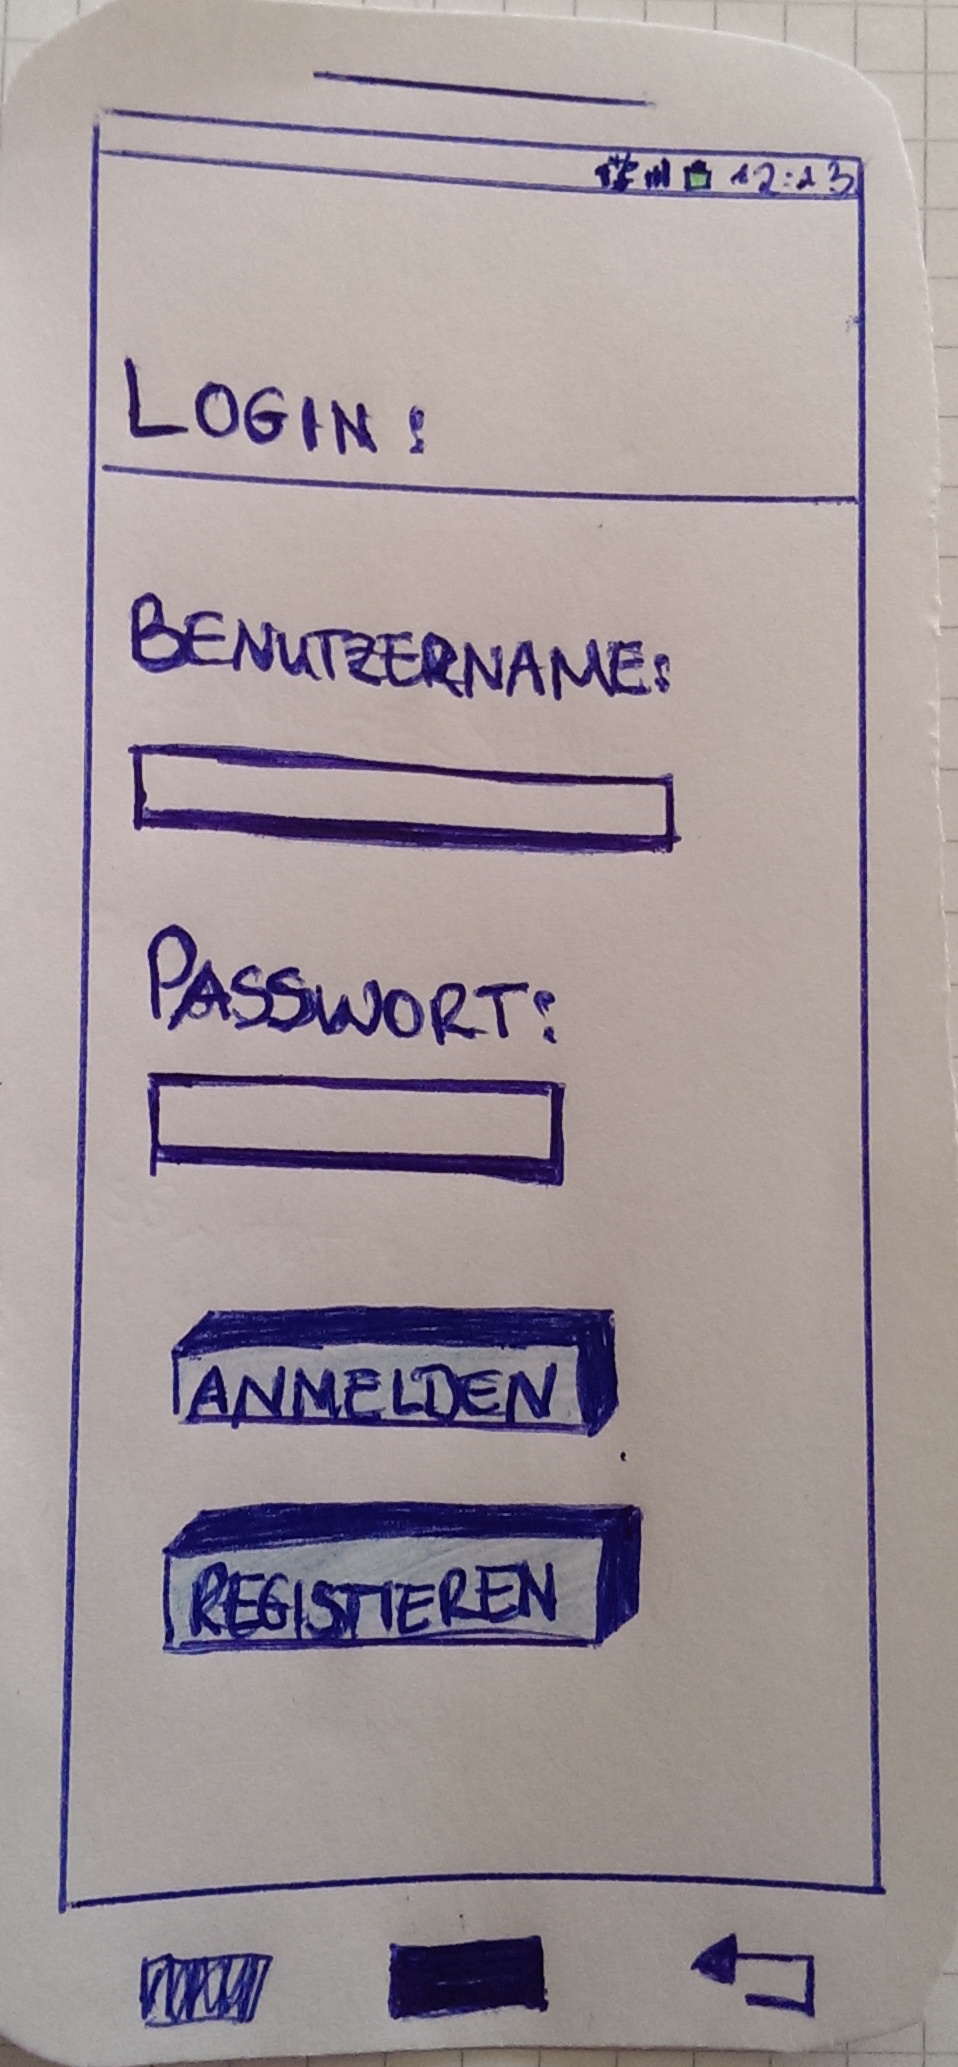 12:13
LOGIN:
BENUTZERNAME:
PASSWORT:
ANMELDEN
REGISTIEREN